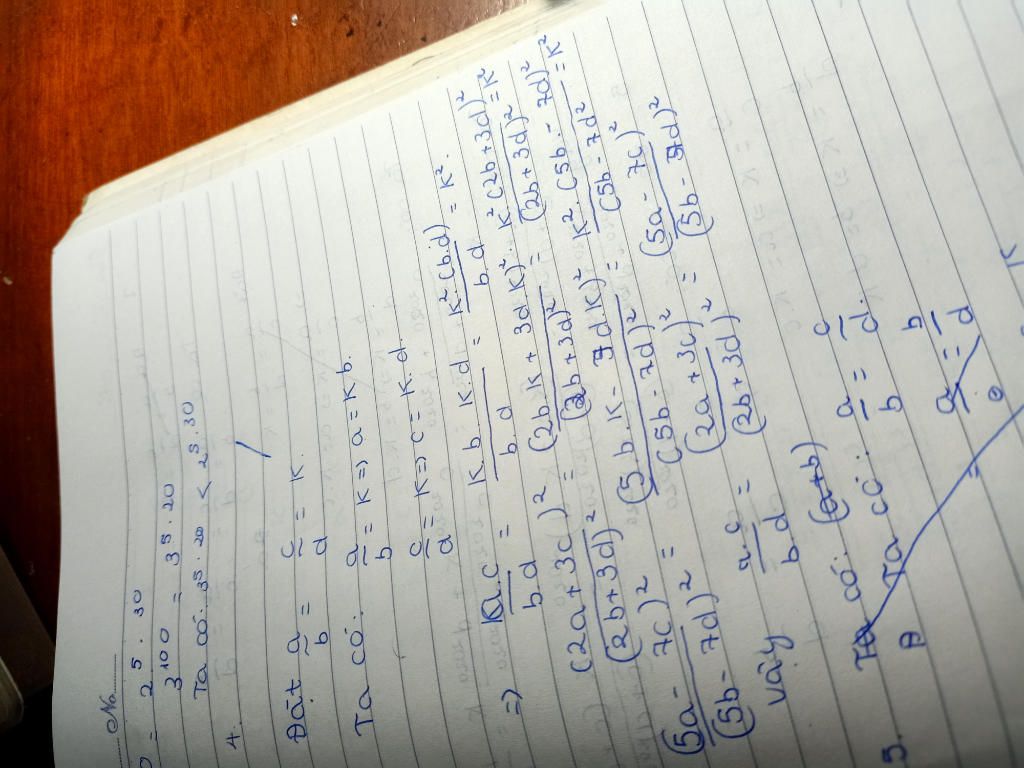 No.
0 = 2 5 . 30
3 100 = 3 5 . 20
Ta có: 3 5 . 20 < 2 5 . 30
4.
Đặt a/b = c/d = K.
Ta có: a/b = K => a = K b.
c/d = K => c = K. d
=> a.c / b.d = K b . K. d / b . d = K². (b.d) / b. d = K².
(2a + 3c)² / (2b + 3d)² = (2b K + 3d K)² / (2b + 3d)² = K² (2b + 3d)² / (2b + 3d)² = K²
(5a - 7c)² / (5b - 7d)² = (5 b. K - 7d K)² / (5b - 7d)² = K². (5b - 7d)² / (5b - 7d² = K²
Vậy a.c / b.d = (2a + 3c)² / (2b + 3d)² = (5a - 7c)² / (5b - 7d)²
5. Ta có: (a+b)
Ta có: a/b = c/d.
a = b/d
K